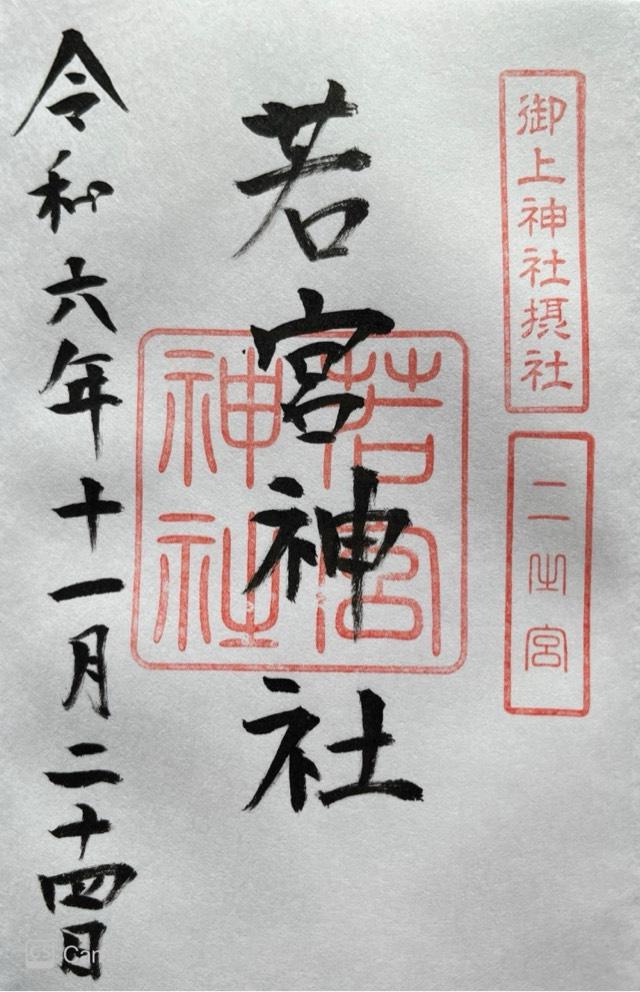 御上神社摂社
二之宮
若宮神社
若宮神社
令和六年十一月二十四日